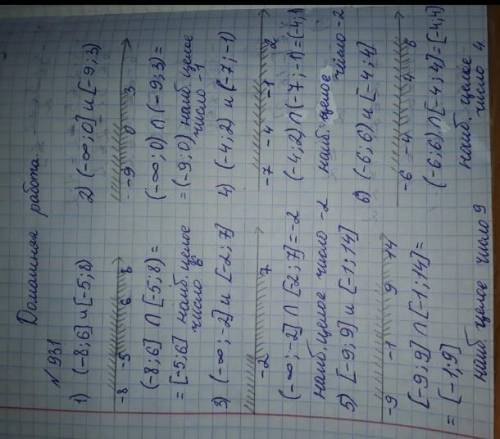 Домашняя работа
№ 931
1) (-8;6] и [-5;8)
-8 -5 6 8
(-8;6] ∩ [-5;8) =
= [-5;6] наиб. целое
число 6
2) (-∞;0] и [-9;3)
-9 0 3
(-∞;0) ∩ (-9;3) =
= (-9;0) наиб. целое
число -1
3) (-∞;-2] и [-2;7]
-2 7
(-∞;-2] ∩ [-2;7] = -2
наиб. целое число -2
4) (-4;2) и (-7;-1)
-7 -4 -1 2
(-4,2) ∩ (-7;-1) = (-4;-1)
наиб. целое число -2
5) [-9;9] и [-1;14]
-9 -1 9 14
[-9;9] ∩ [-1;14] =
= [-1;9]
наиб. целое число 9
6) (-6;6) и [-4;4]
-6 -4 4 6
(-6;6) ∩ [-4;4] = [-4,4]
наиб. целое
число 4.